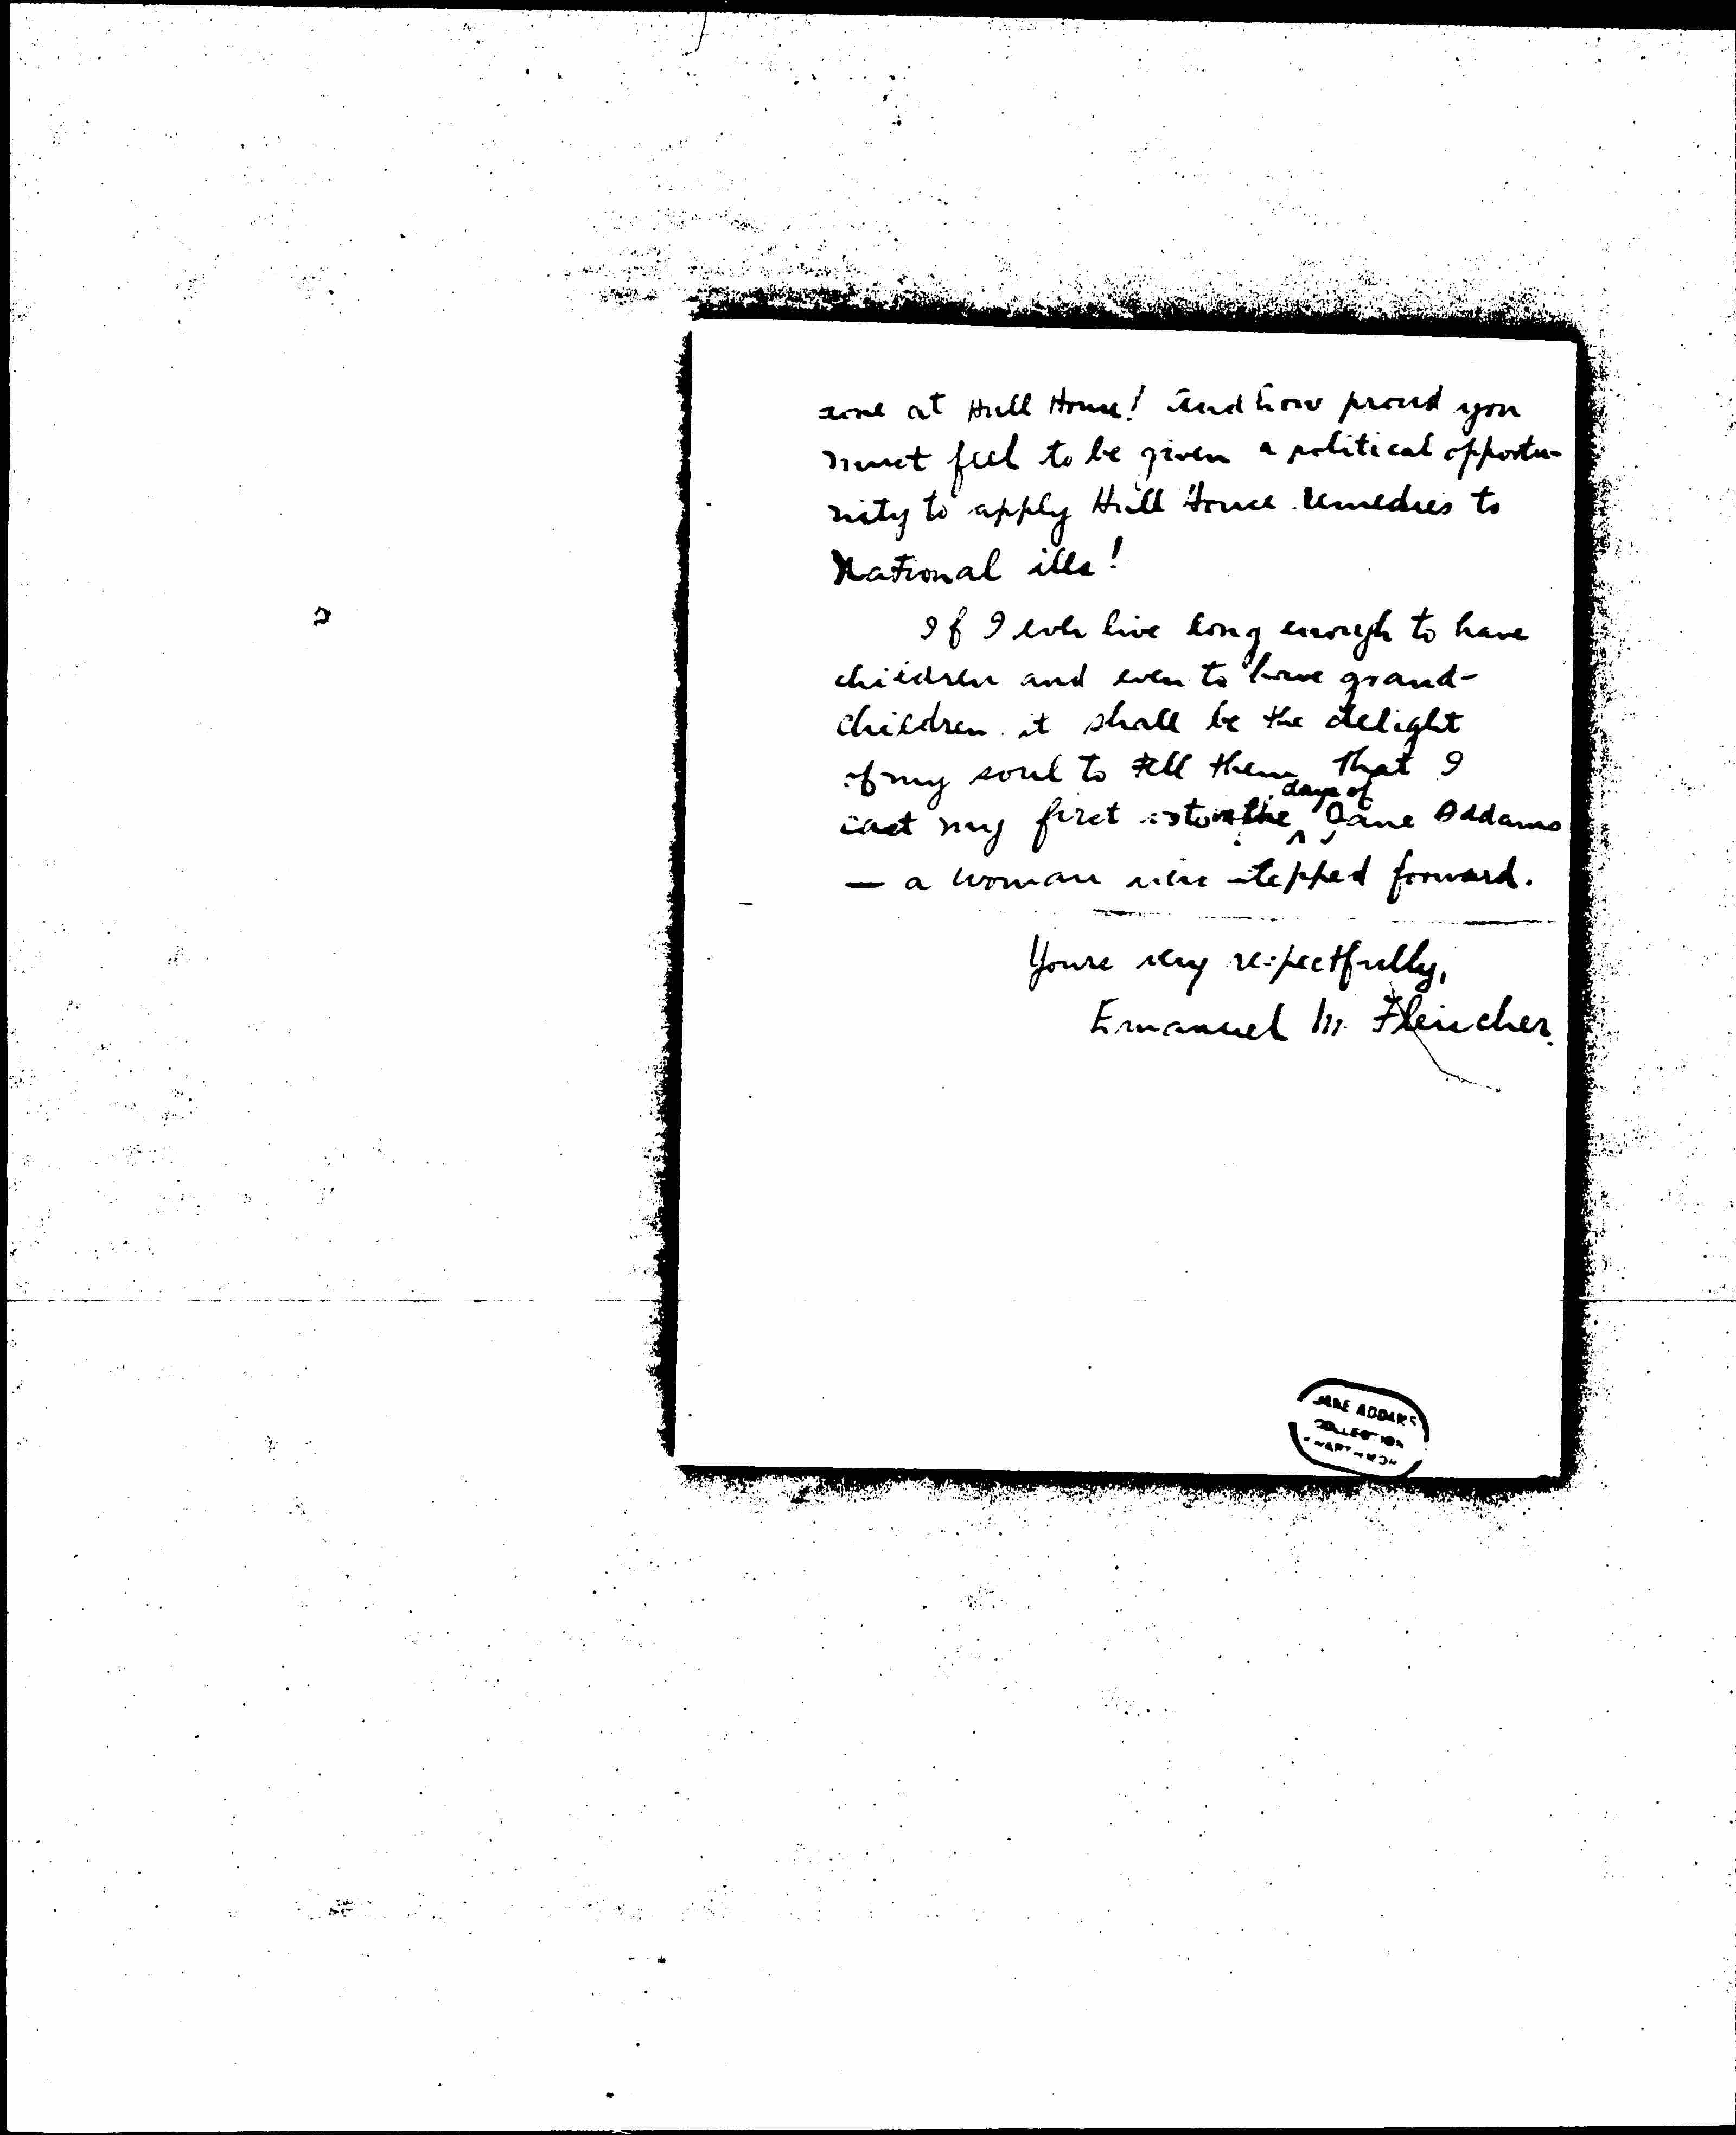 done at Hull House! And how proud you
must feel to be given a political opportu-
nity to apply Hull House remedies to
National ills!
If I ever live long enough to have
children and even to have grand-
children it shall be the delight
of my soul to tell them that I
cast my first vote in the days of Jane Addams
— a woman who stepped forward.
Yours very respectfully,
Emanuel M. Fleischer.
JANE ADDAMS
COLLECTION
SWARTHMORE